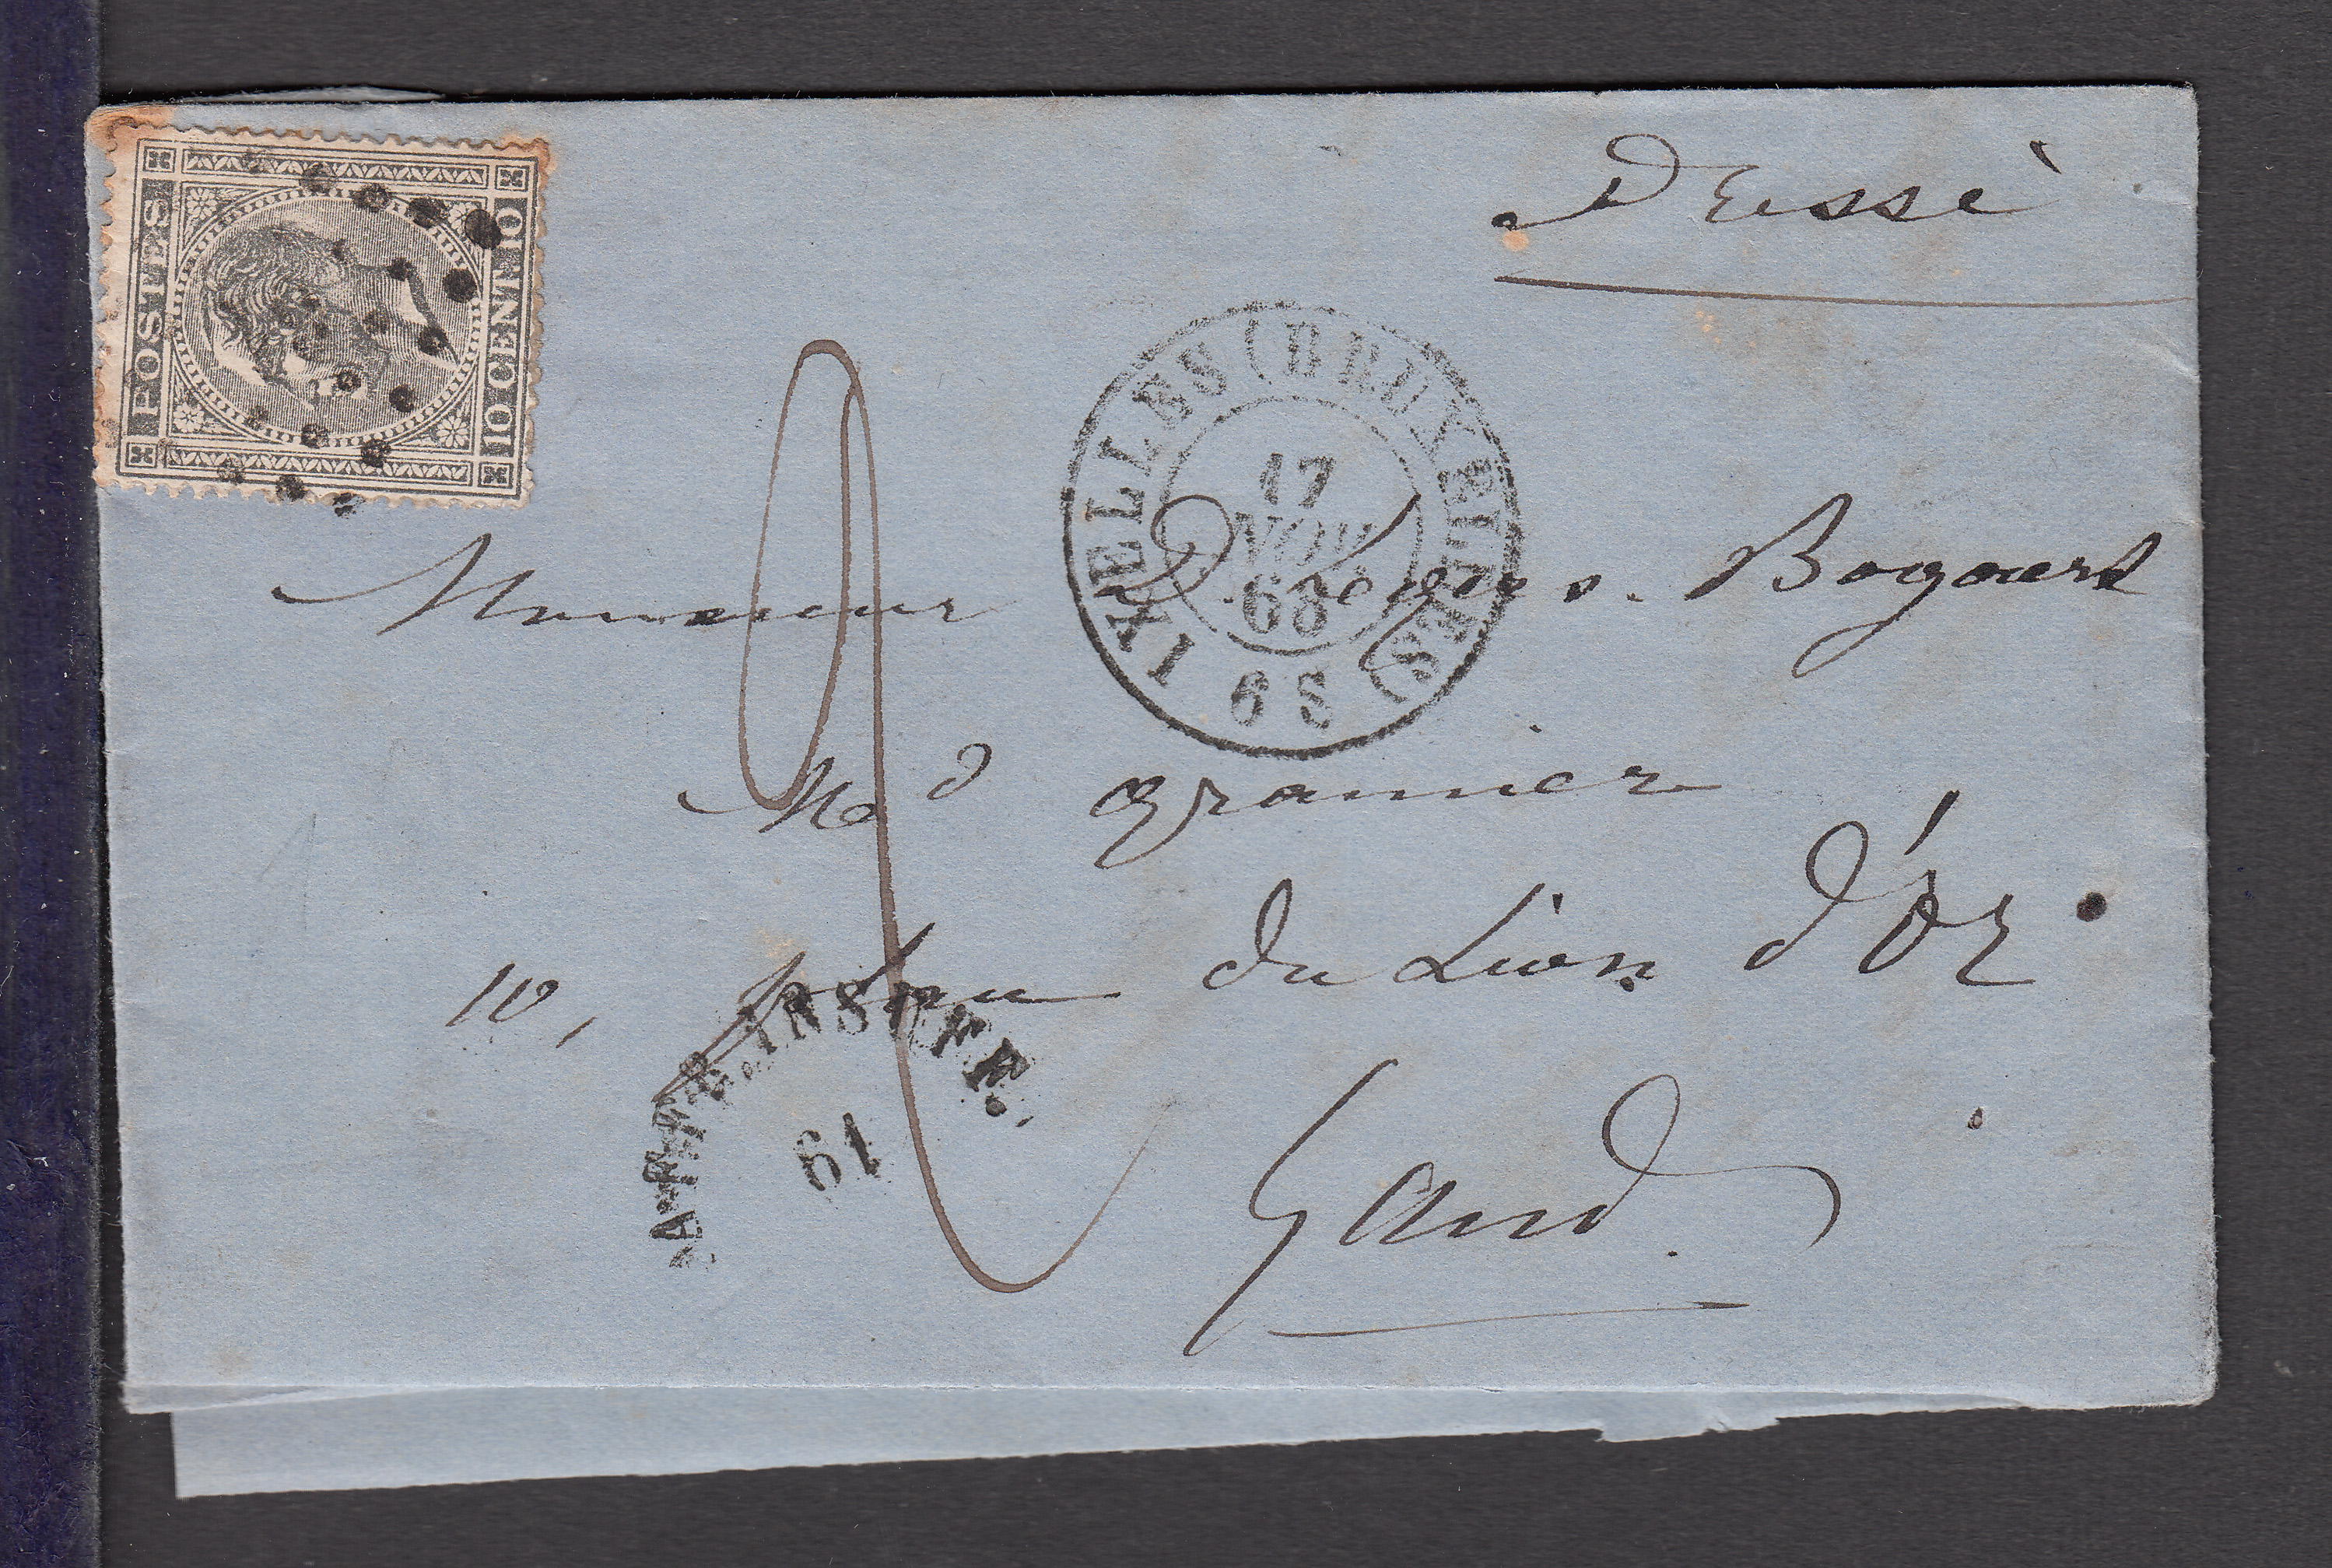 POSTES
10 CENT 10
Pressé
IXELLES (BRUXELLES)
17
NOV
68
6 S
Monsieur D. Bogaert
Md grainier
10, du Lion d'Or
AFFR. INSUFF.
61
Gand.